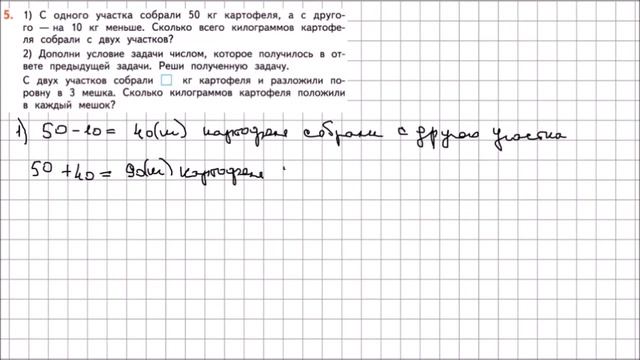 5. 1) С одного участка собрали 50 кг картофеля, а с друго-
го — на 10 кг меньше. Сколько всего килограммов картофе-
ля собрали с двух участков?
2) Дополни условие задачи числом, которое получилось в от-
вете предыдущей задачи. Реши полученную задачу.
С двух участков собрали □ кг картофеля и разложили по-
ровну в 3 мешка. Сколько килограммов картофеля положили
в каждый мешок?
1) 50-10= 40(кг) картофеля собрали с другого участка
50+40= 90(кг) картофеля